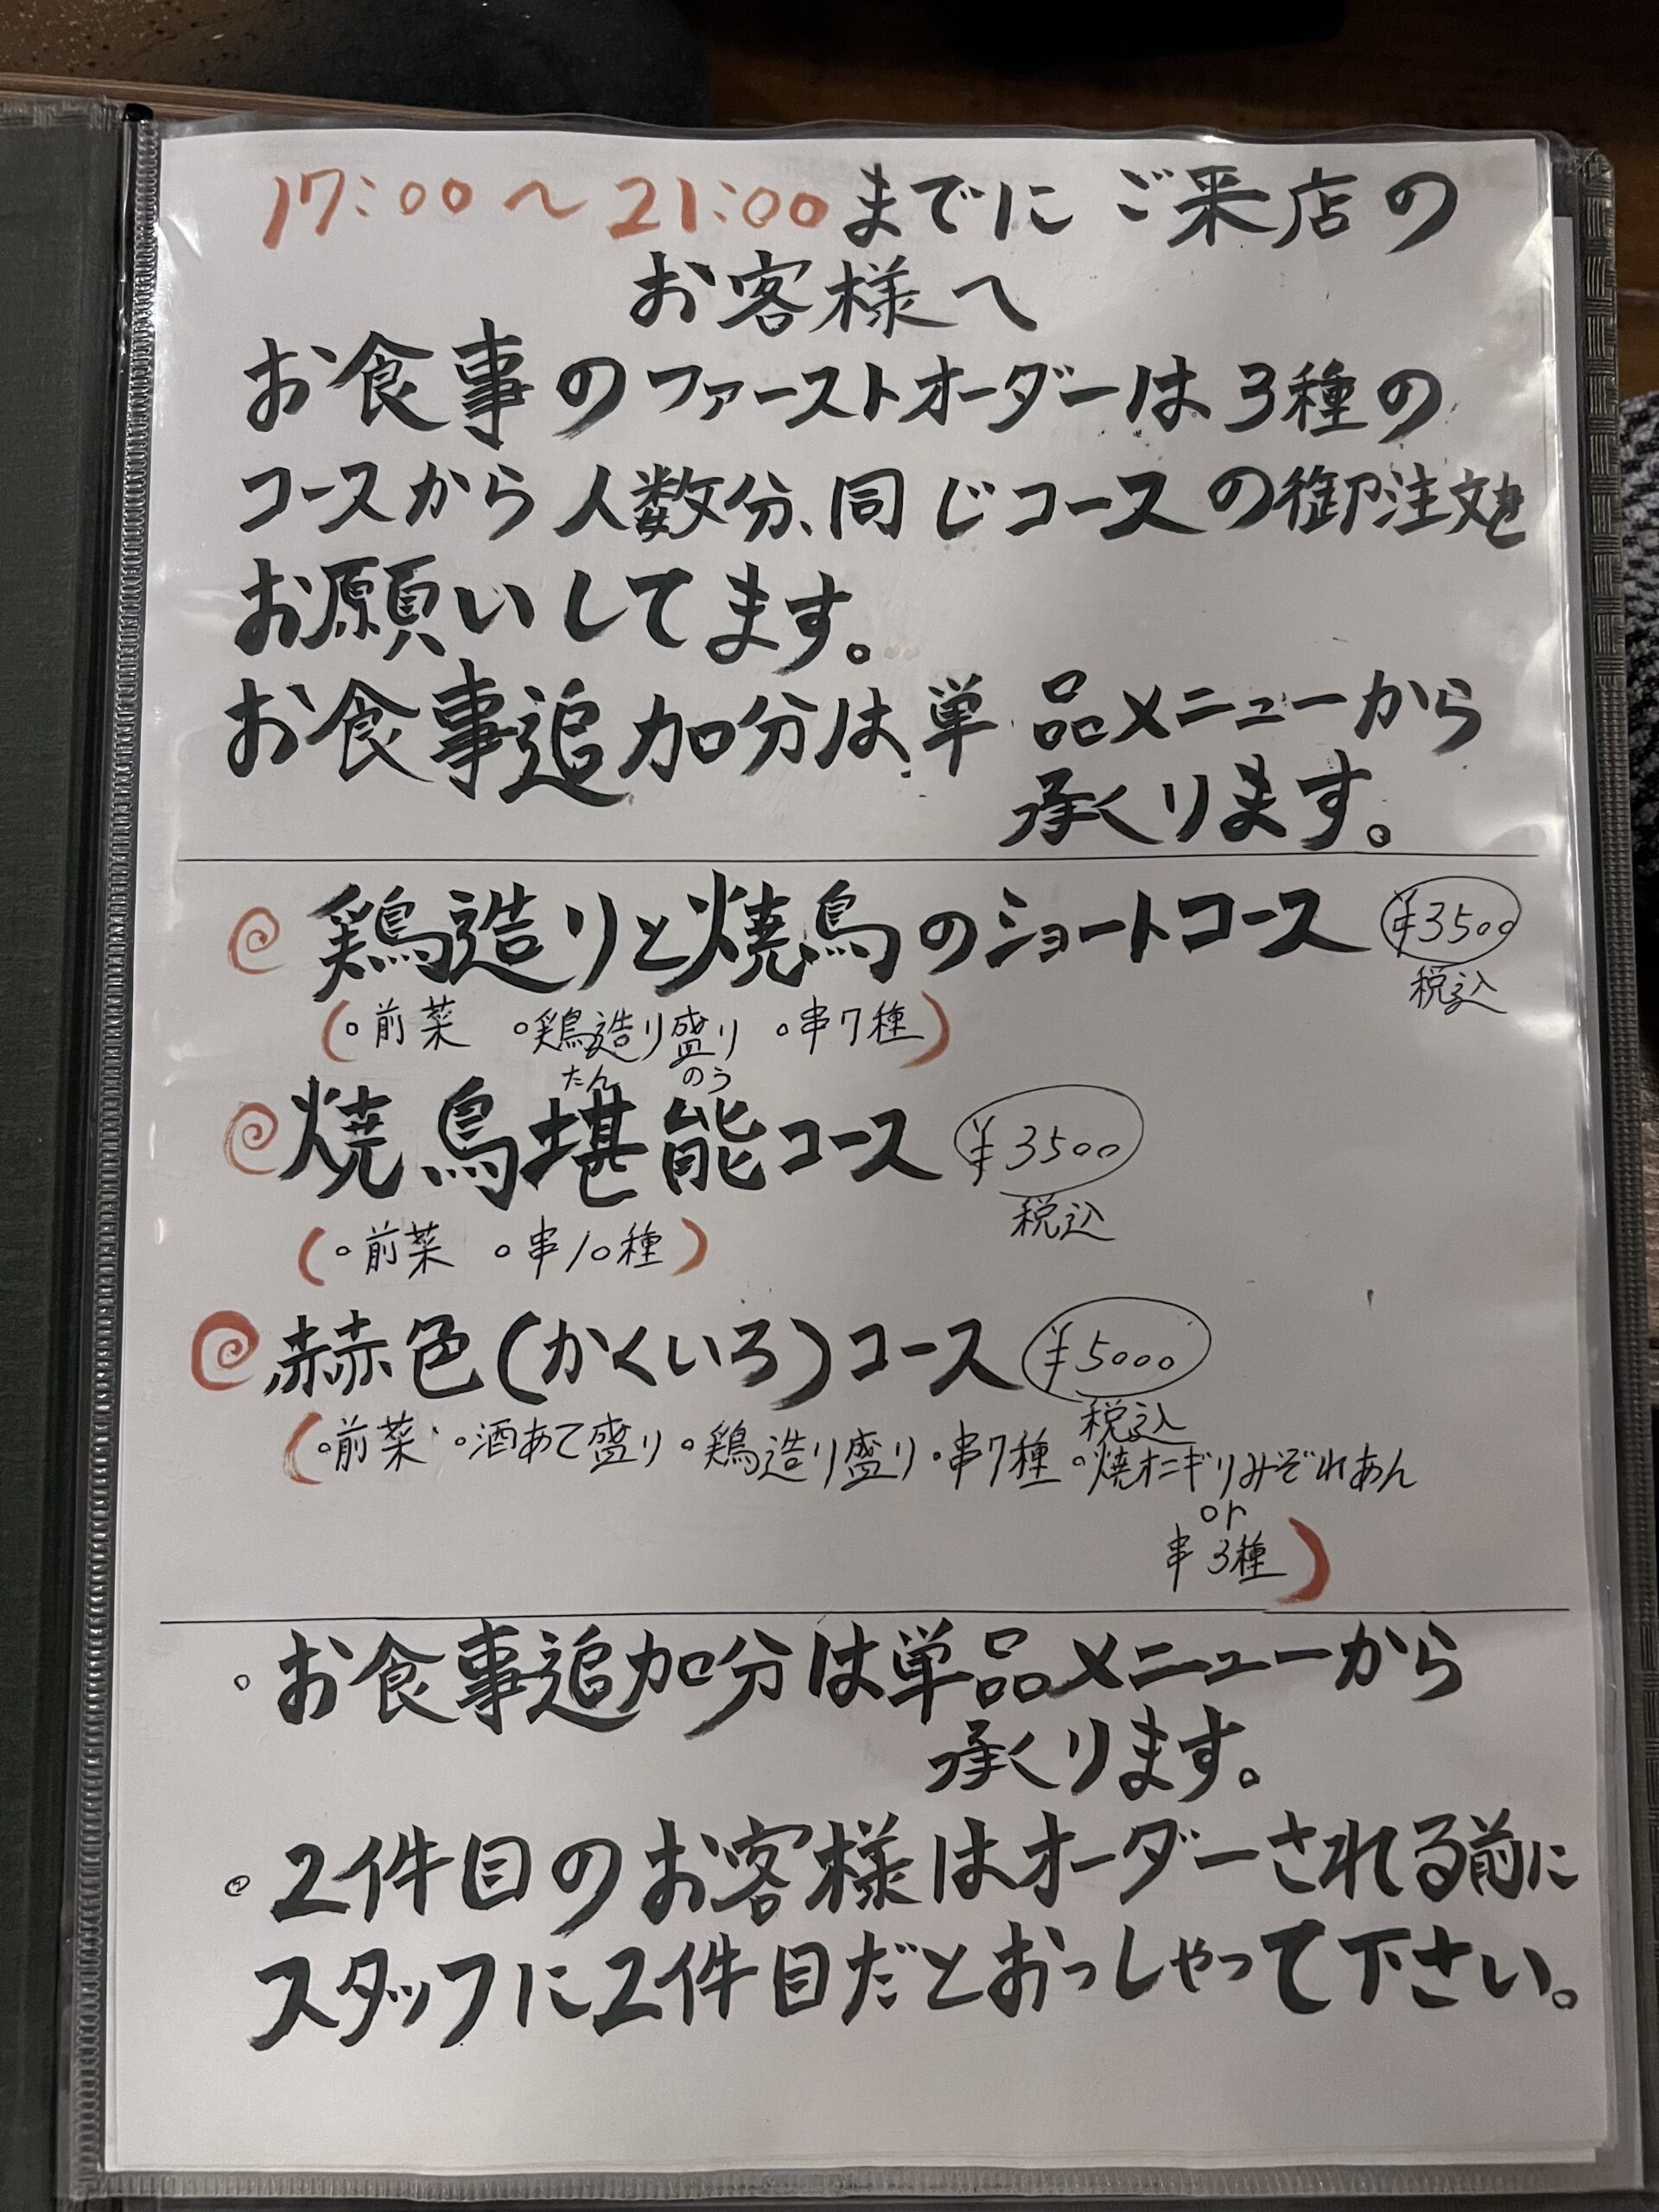 17:00〜21:00までにご来店の
お客様へ
お食事のファーストオーダーは3種の
コースから人数分、同じコースの御注文を
お願いしてます。
お食事追加分は、単品メニューから
承くります。
鶏造りと焼鳥のショートコース ¥3500
税込
(。前菜 。鶏造り盛り 。串7種)
たん のう
焼鳥堪能コース ¥3500
税込
(。前菜 。串10種)
赫色(かくいろ)コース ¥5000
税込
(。前菜 。酒あて盛り 。鶏造り盛り 。串7種 。焼オニギリみぞれあん
or
串3種)
。お食事追加分は単品メニューから
承くります。
。2件目のお客様はオーダーされる前に
スタッフに2件目だとおっしゃって下さい。